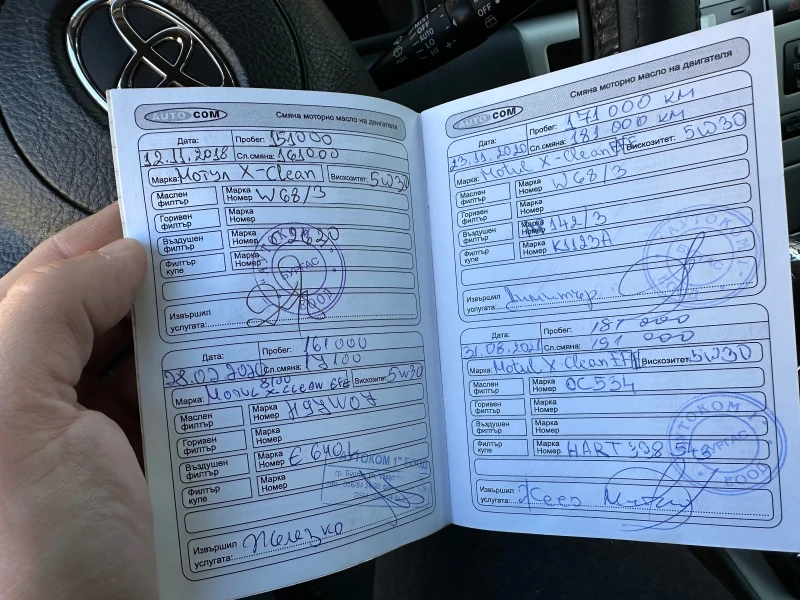 MIST
OFF
AUTO
LO
HI
OFF
AUTO COM
Смяна моторно масло на двигателя
Дата: Пробег: 151000
12.11.2018 Сл.смяна: 161000
Марка: Мотул X-Clean Вискозитет: 5W30
Маслен филтър Марка Номер W68/3
Горивен филтър Марка Номер
Въздушен филтър Марка Номер
Филтър купе Марка Номер
АВТОКОМ БУРГАС ЕООД
Извършил услугата:
Дата: Пробег: 161 000
28.02.2020 Сл.смяна: 17100
Марка: 8100 Мотул X-clean Вискозитет: 5W30
Маслен филтър Марка Номер
Горивен филтър Марка Номер
Въздушен филтър Марка Номер
Филтър купе Марка Номер
АВТОКОМ 1" ЕООД
Извършил услугата: Железко
AUTO COM
Смяна моторно масло на двигателя
Дата: Пробег: 171 000 КМ
23.11.2020 181 000 КМ
Марка: Motul X-Clean Вискозитет: 5W30
Маслен филтър Марка Номер W68/3
Горивен филтър Марка Номер
Въздушен филтър Марка Номер 142/3
Филтър купе Марка Номер K1123A
АВТОКОМ БУРГАС ЕООД
Извършил услугата: Димитър
Дата: Пробег: 181 000
31.08.2021 191 000
Марка: Motul X-Clean EFE Вискозитет: 5W30
Маслен филтър Марка Номер OC534
Горивен филтър Марка Номер
Въздушен филтър Марка Номер
Филтър купе Марка Номер HART 398 543
АВТОКОМ БУРГАС ЕООД
Извършил услугата: